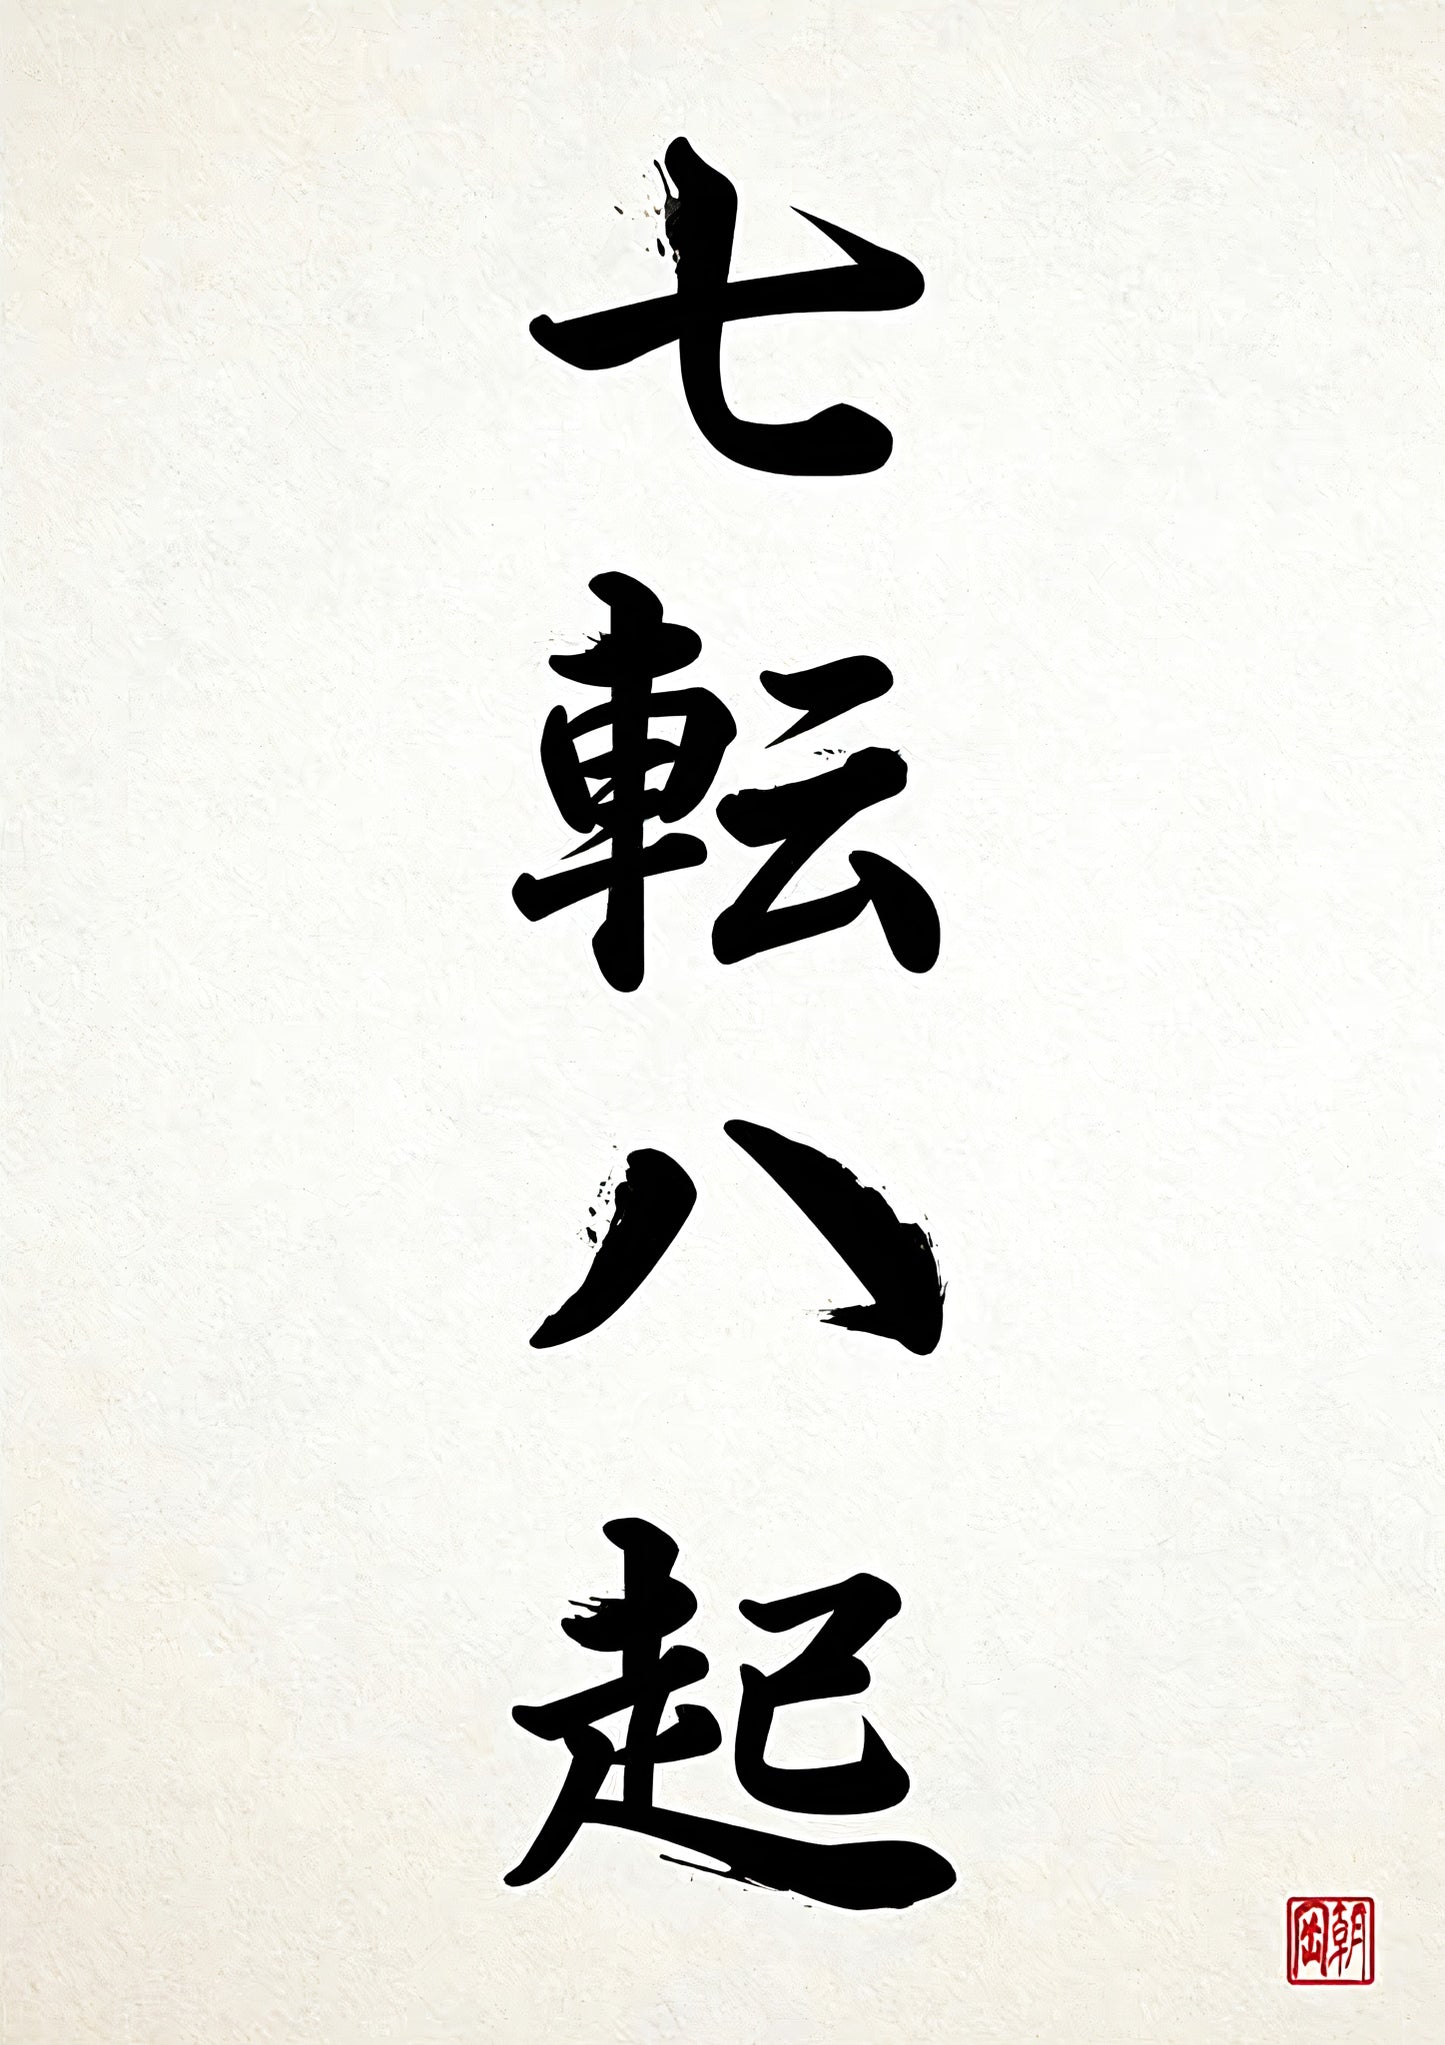 七転八起
朝岡